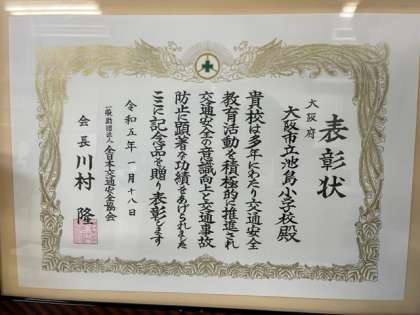 表彰状
大阪府
大阪市立池島小学校殿
貴校は多年にわたり交通安全
教育活動を積極的に推進され
交通安全の意識向上と交通事故
防止に顕著な功績をあげられました
ここに記念品を贈り表彰します
令和五年一月十八日
一般財団法人 全日本交通安全協会
会長 川村 隆